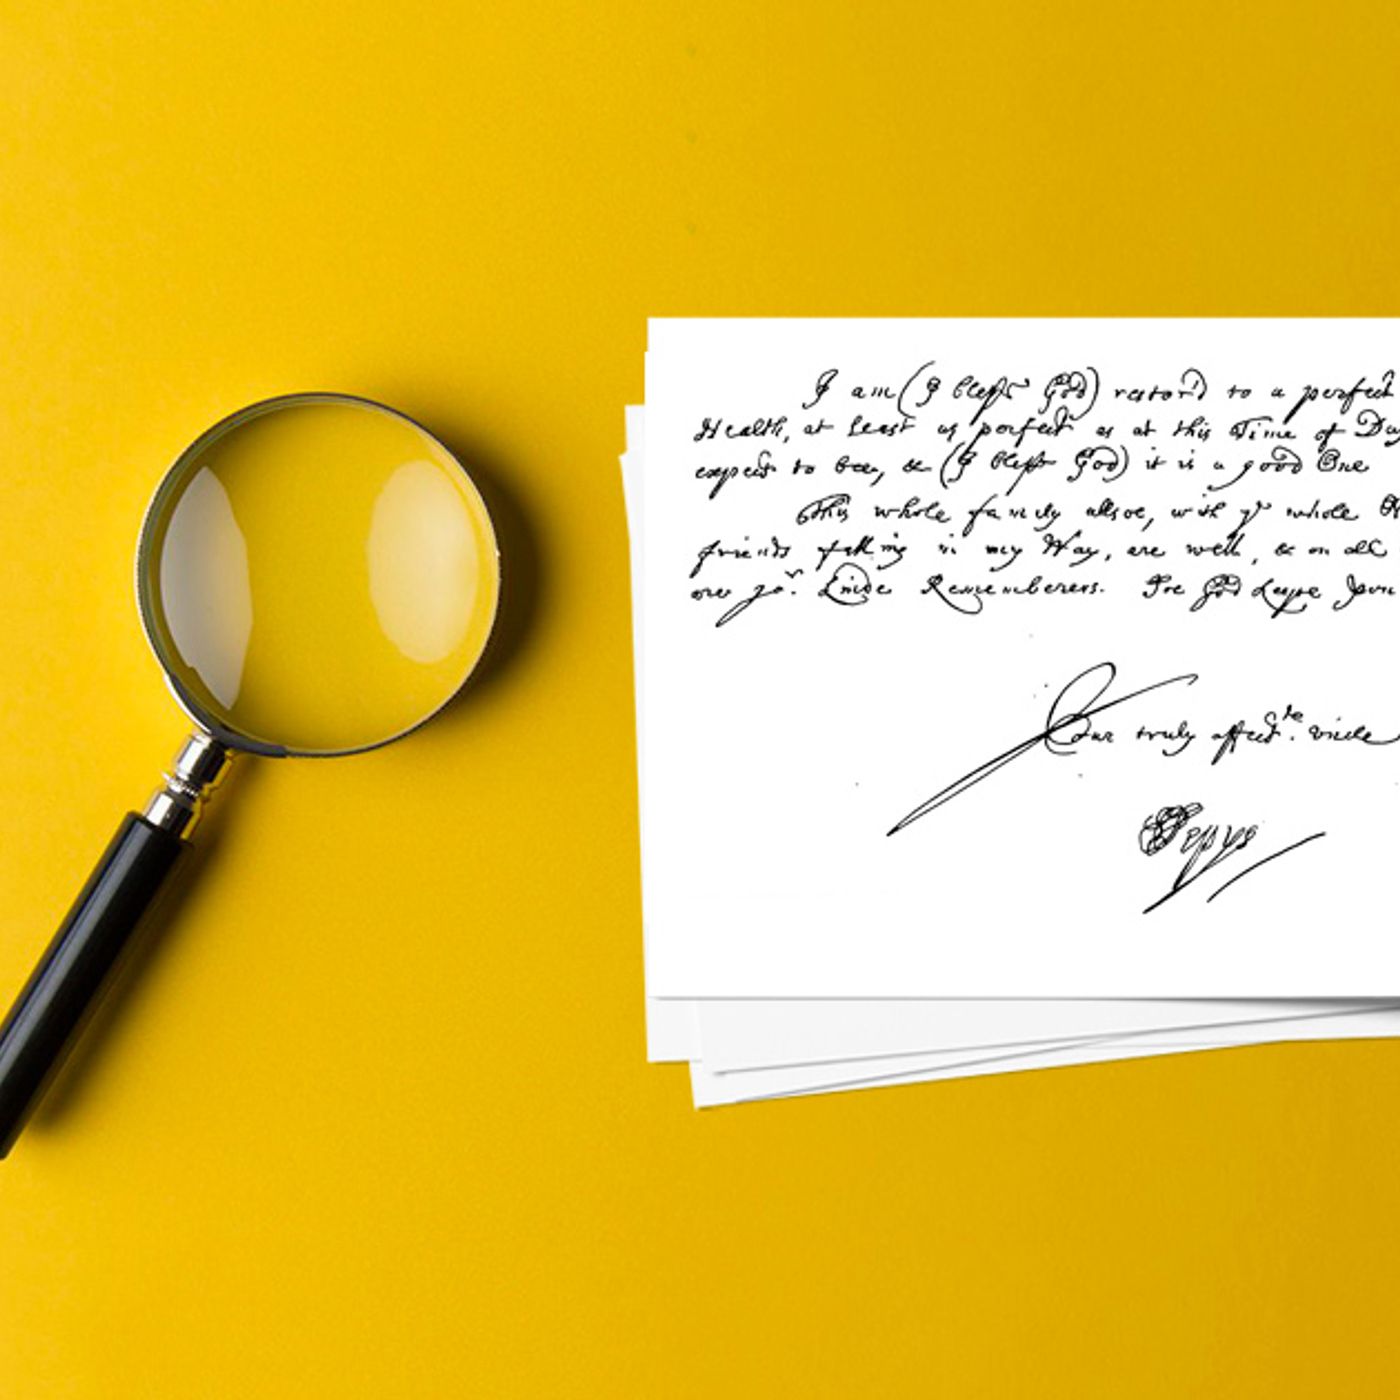 I am (I bless God) restor'd to a perfect
Health, at least as perfect as at this Time of Day
expect to bee, & (I bless God) it is a good One
This whole family allsoe, with yr whole
friends falling in my Way, are well, & on all
over yor. Kinde Rememberers. Soe God keepe
Your truly affectte. Uncle
SPepys